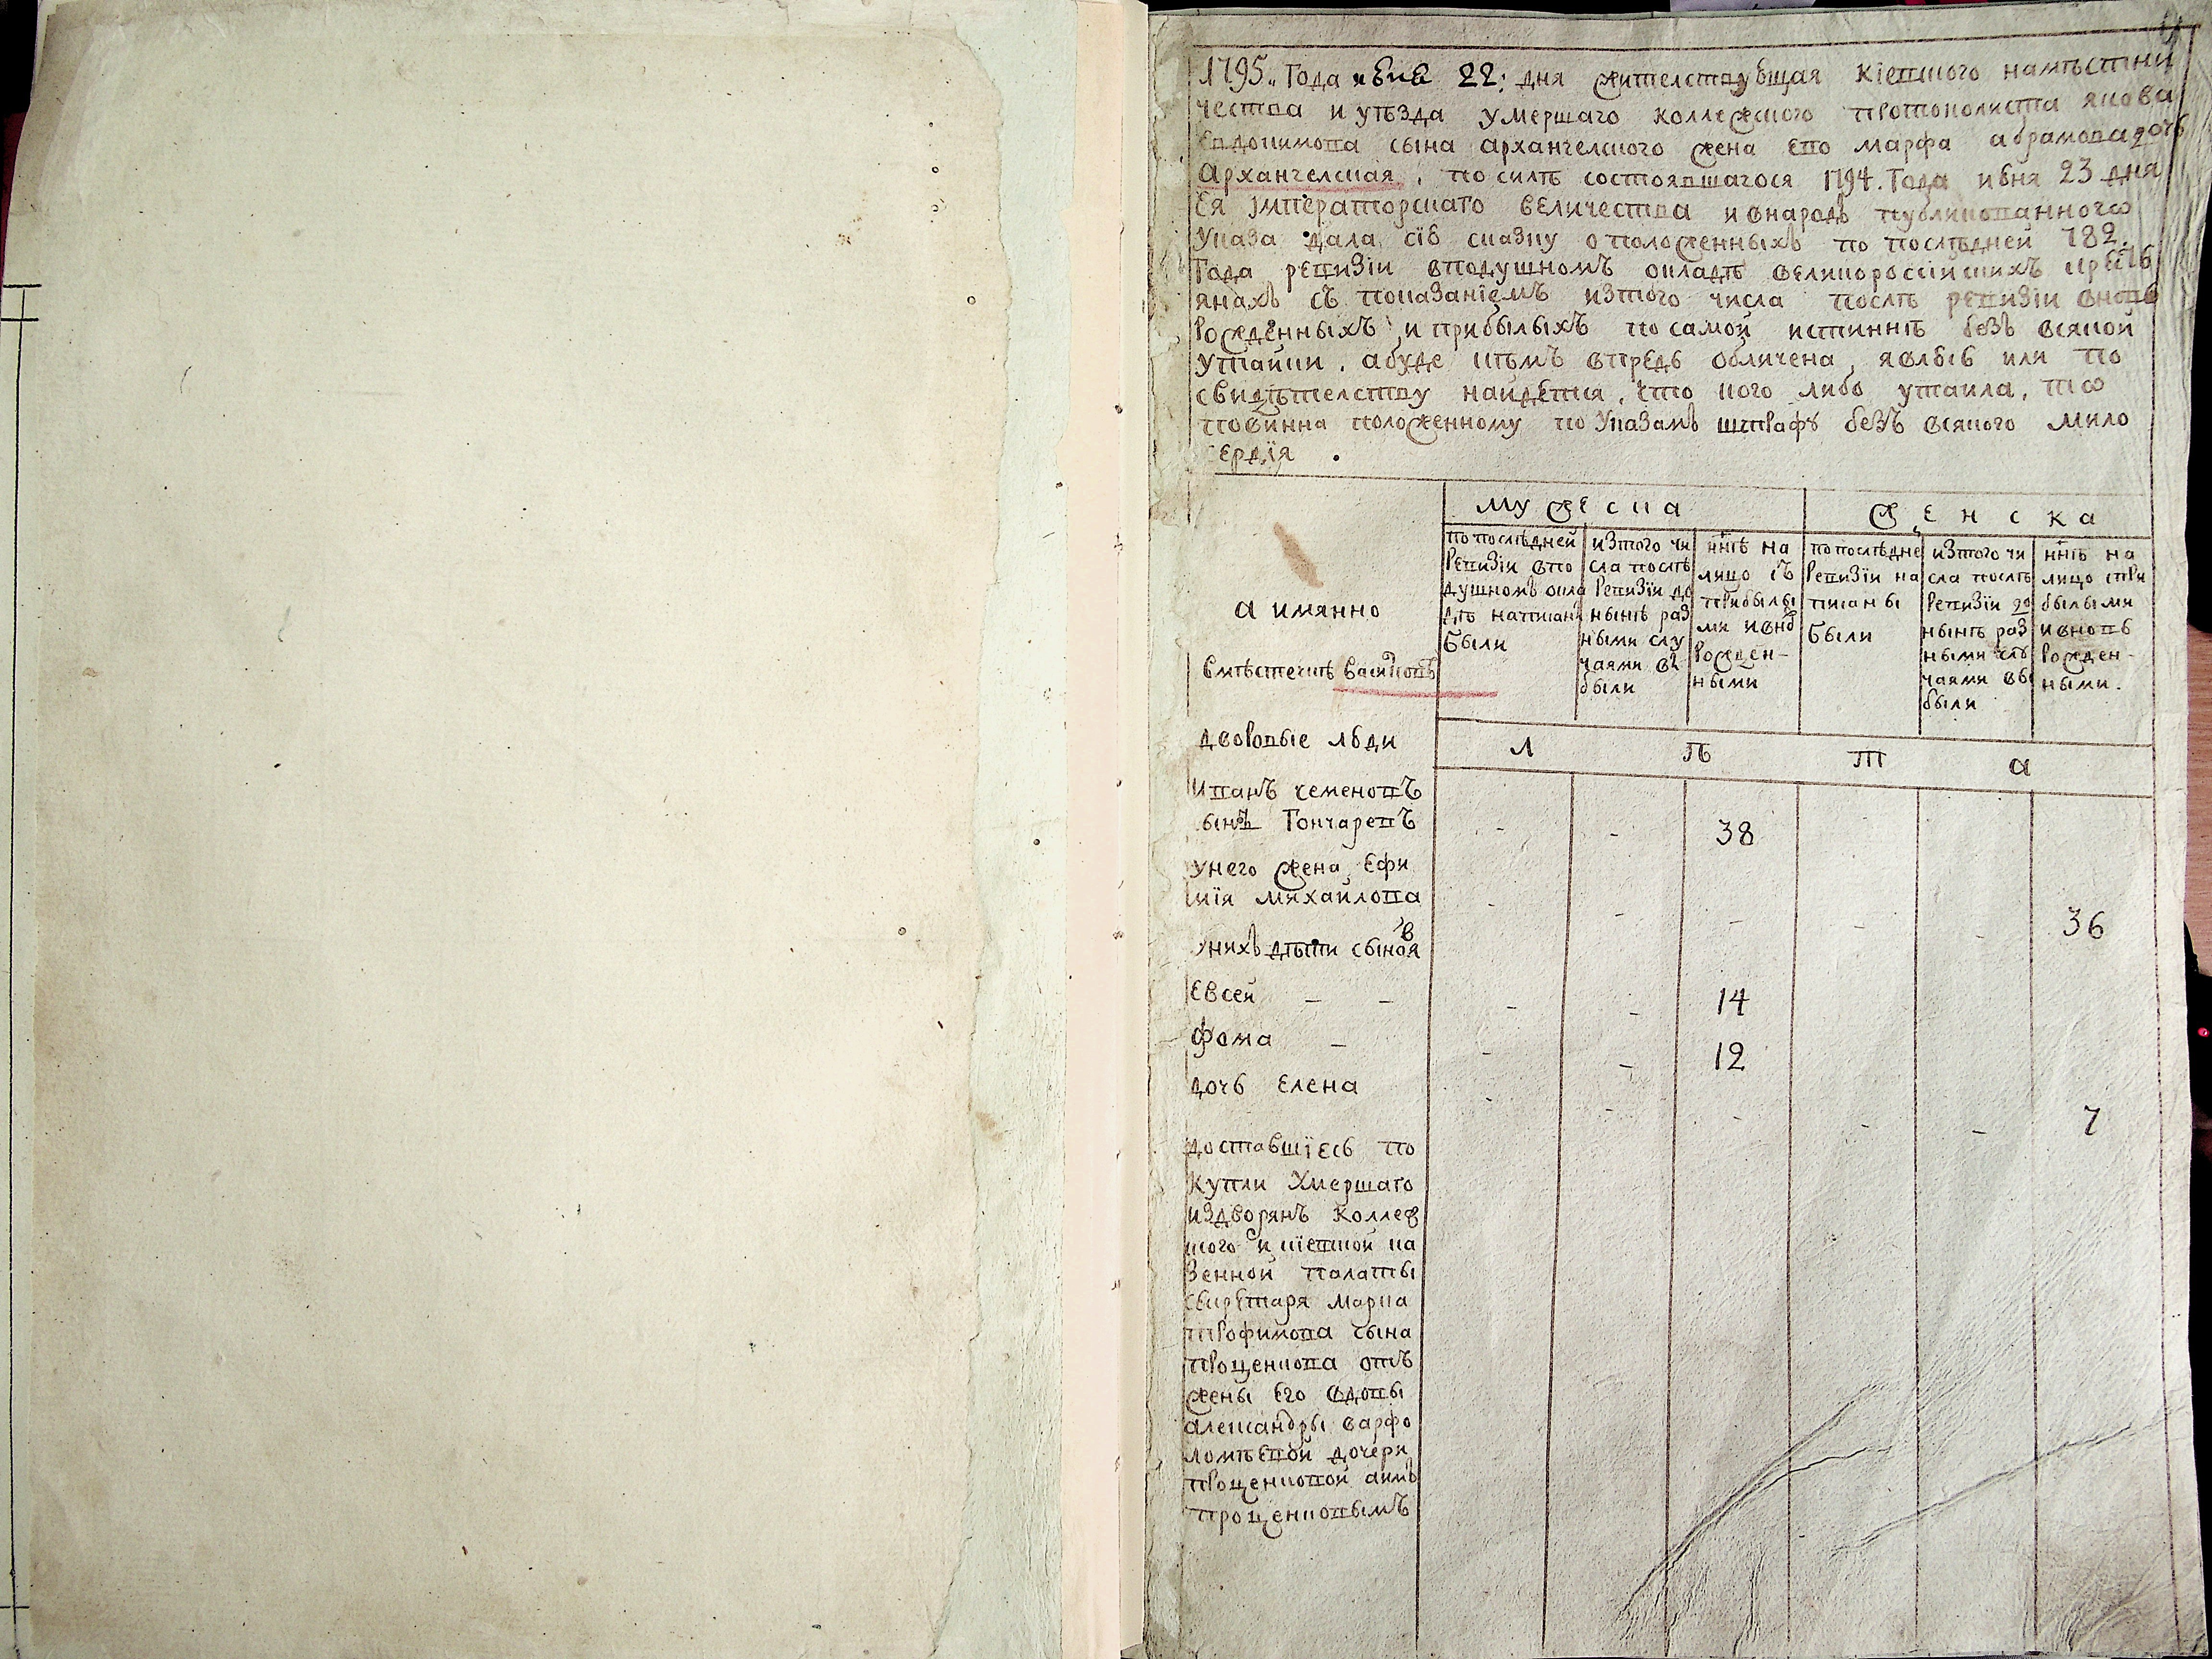 1795. Года июня 22: дня жителствующая Кіевского намѣстни
чества и уѣзда умершаго коллежского протоколиста якова
Евдокимова сына архангелского жена ево марфа абрамова дочь
Архангелская, по силѣ состоявшагося 1794. Года июня 23 дня
Ея Імператорскаго величества и внародъ публикованного
Указа дала сію сказку о положенныхъ по послѣдней 782.
Года ревизіи вподушномъ окладѣ великороссійскихъ кресть
янахъ съ показаніемъ изтого числа послѣ ревизіи вновь
рожденныхъ и прибылыхъ по самой истиннѣ безъ всякой
утайки, абуде кѣмъ впредь обличена, явлюсь или по
свидѣтелству найдется, что кого либо утаила, то
повинна положенному по Указамъ штрафу безъ всякого мило
сердія.
а имянно
мужеска
женска
по послѣдней ревизіи впо душномъ окла дѣ написаны были
изтого чи сла послѣ ревизіи до нынѣ раз ными слу чаями вы были
ннѣ на лицо съ прибылы ми ивно рожден- ными
по послѣдне ревизіи на писаны были
изтого чи сла послѣ ревизіи до нынѣ раз ными слу чаями вы были
ннѣ на лицо при былыми ивновь рожден- ными.
Вмѣстечкѣ Василковѣ
дворовые люди
л ѣ т а
Иванъ семеновъ
сынъ Гончаревъ - - 38 -
унего жена Ефи
мія михайлова - - - - - 36
унихъ дѣти сыновя
Евсей - - - - 14
фома - - - 12
дочь елена - - - - - 7
доставшіесь по
купли умершаго
издворянъ коллеж
ского и кіевской ка
зенной палаты
секретаря марка
трофимова сына
проценкова отъ
жены его вдовы
александры варфо
ломѣевой дочери
проценковой аимъ
проценковымъ